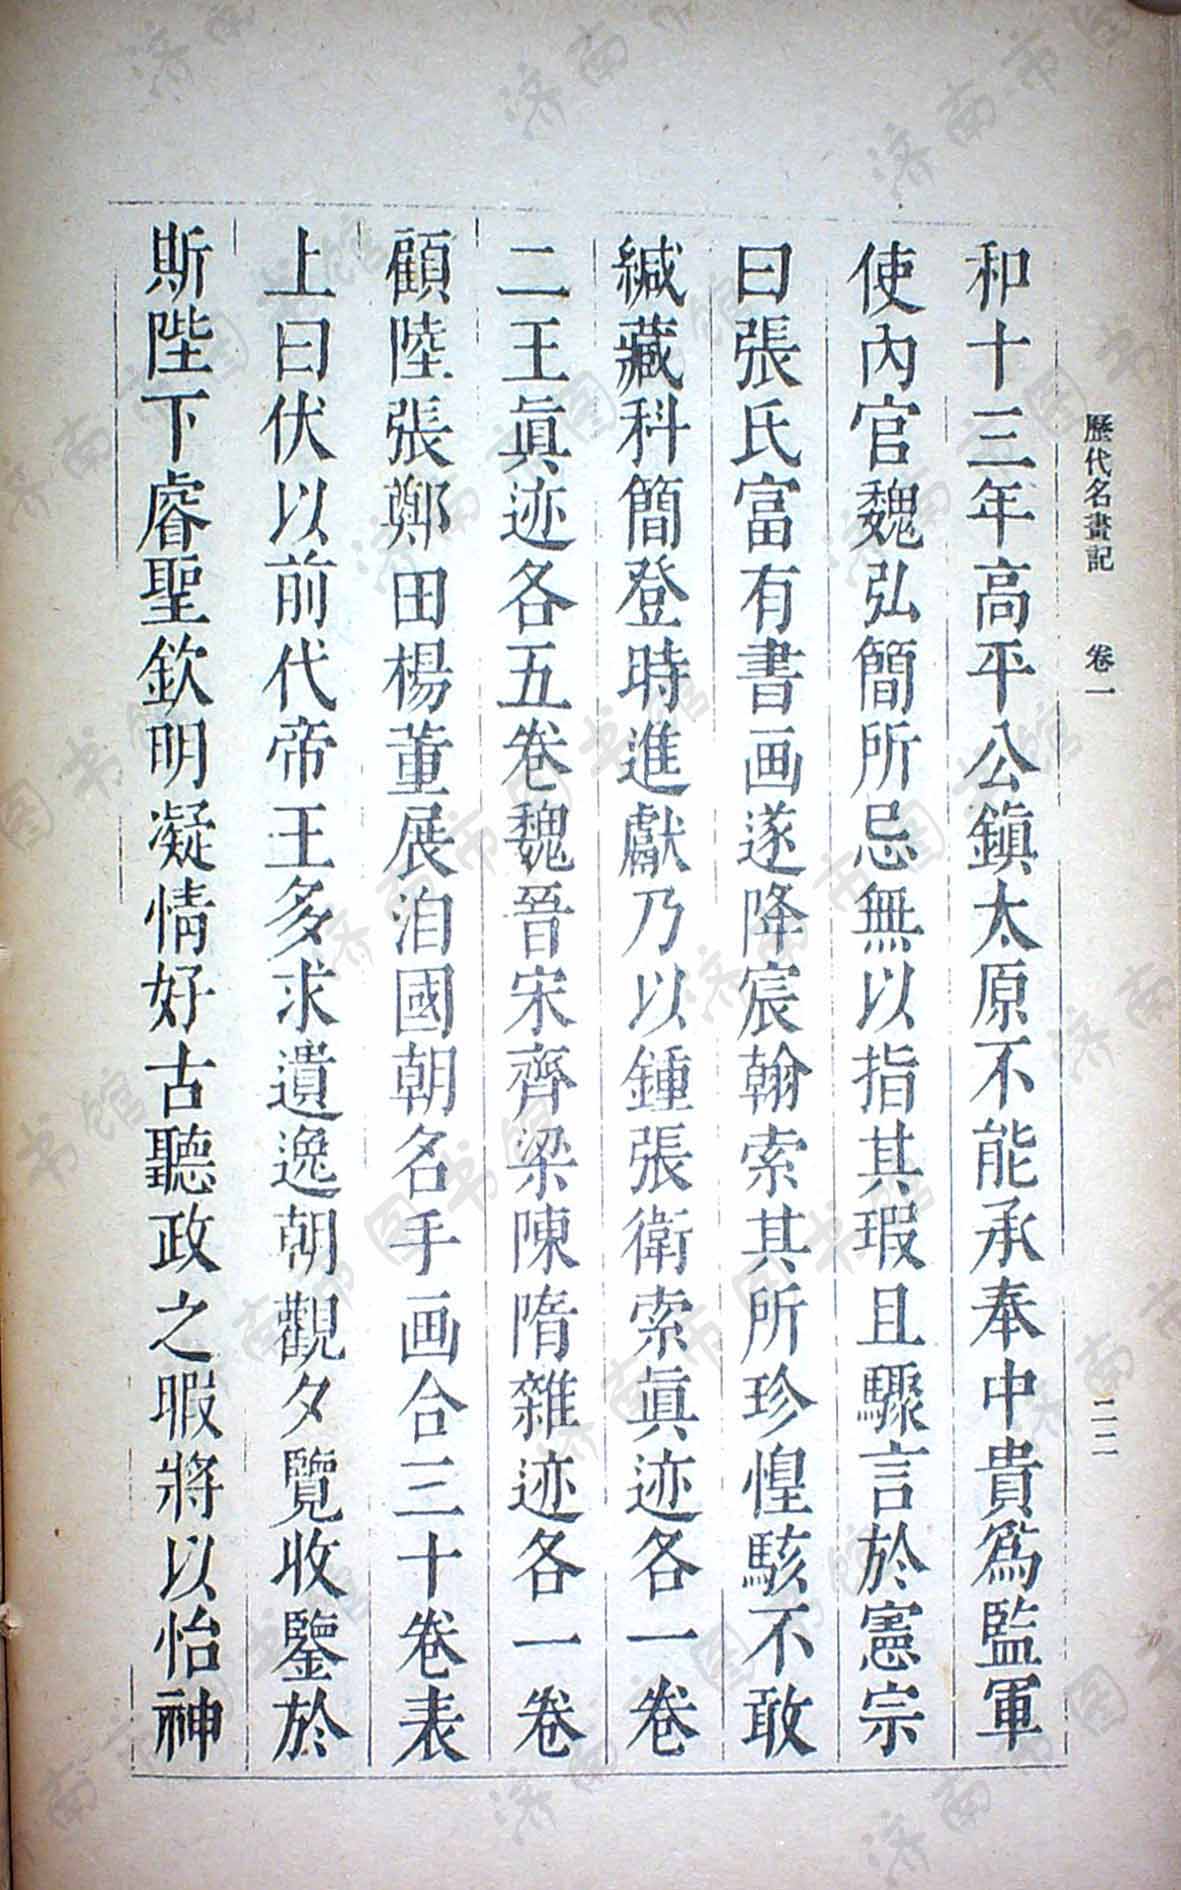 歷代名畫記 卷一 二二
和十三年高平公鎭太原不能承奉中貴爲監軍
使內官魏弘簡所忌無以指其瑕且驟言於憲宗
曰張氏富有書画遂降宸翰索其所珍惶駭不敢
緘藏科簡登時進獻乃以鍾張衛索眞迹各一卷
二王眞迹各五卷魏晉宋齊梁陳隋雜迹各一卷
顧陸張鄭田楊董展洎國朝名手画合三十卷表
上曰伏以前代帝王多求遺逸朝觀夕覽收鑒於
斯陛下睿聖欽明凝情好古聽政之暇將以怡神
济南市图书馆